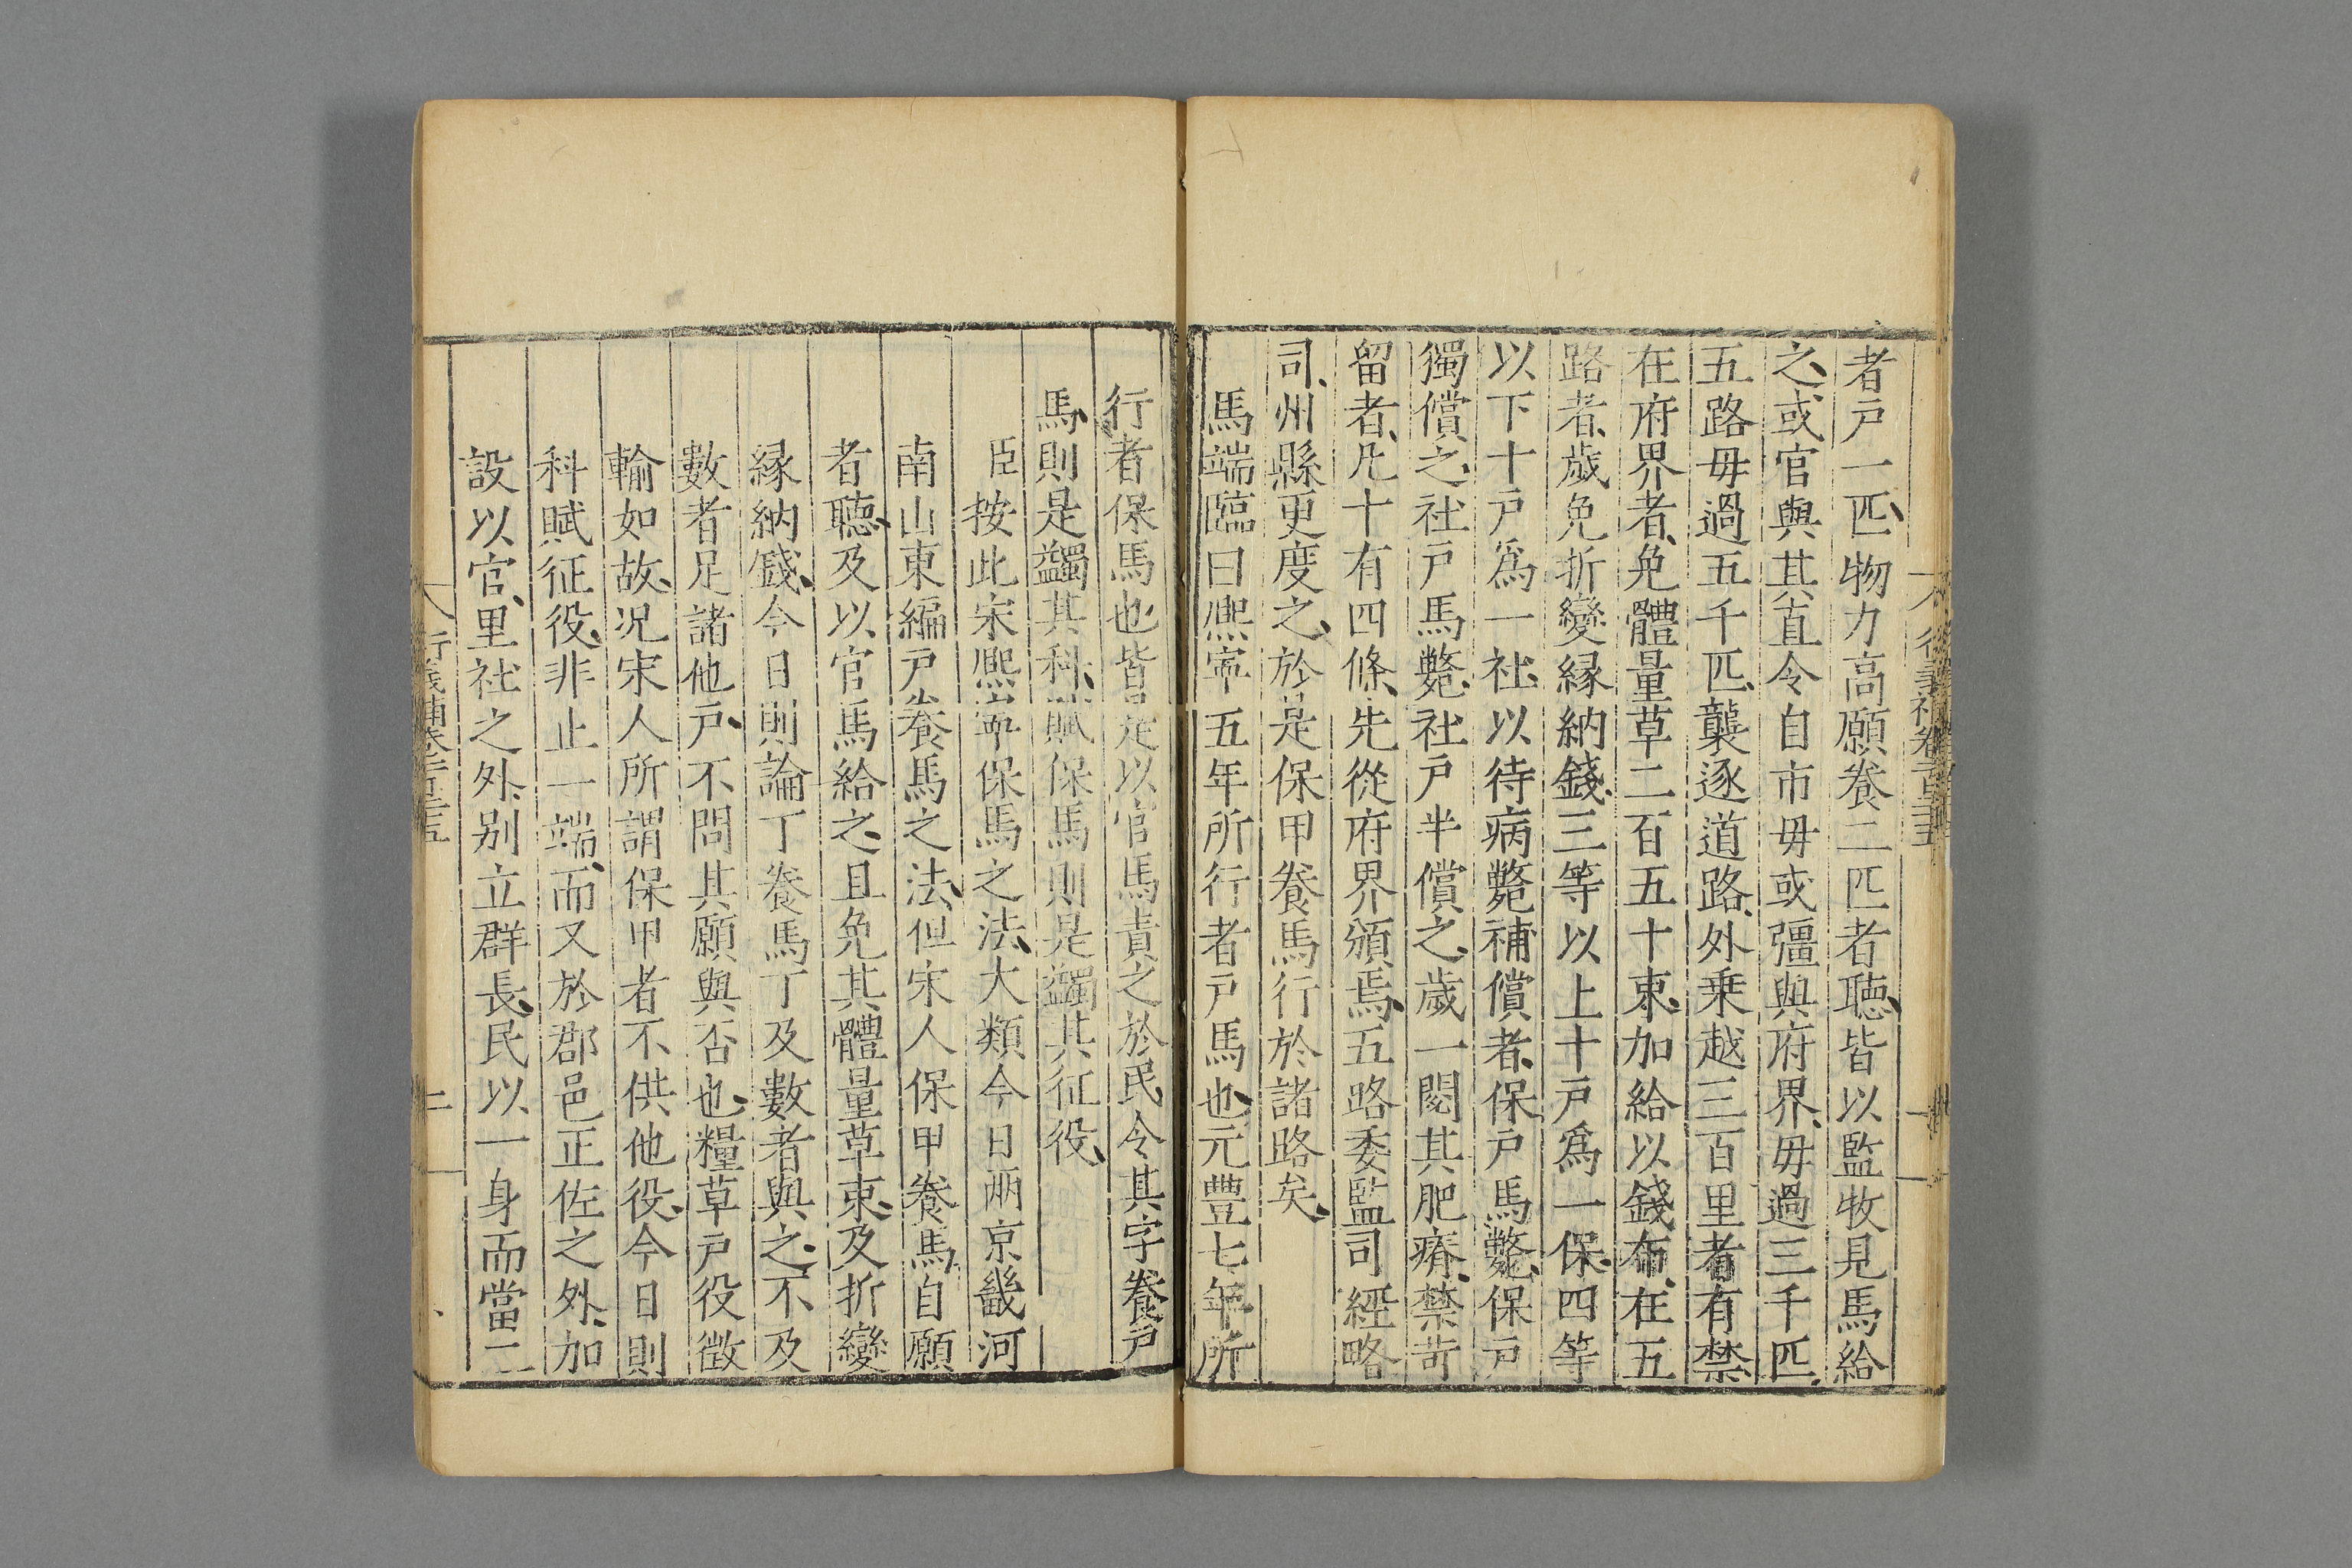 者戸一匹物力高願養二匹者聽皆以監牧見馬給
之或官與其直令自市毋或彊與府界毋過三千匹
五路毋過五千匹襲逐道路外乗越三百里者有禁
在府界者免體量草二百五十束加給以錢布在五
路者歲免折變緣納錢三等以上十戸爲一保四等
以下十戸爲一社以待病斃補償者保戸馬斃保戸
獨償之社戸馬斃社戸半償之歲一閱其肥瘠禁苛
留者凡十有四條先從府界頒焉五路委監司經略
司州縣更度之於是保甲養馬行於諸路矣
馬端臨曰熈寧五年所行者戸馬也元豊七年所
行者保馬也皆是以官馬責之於民令其字養戸
馬則是蠲其科賦保馬則是蠲其征役
臣按此宋熈寧保馬之法大類今日兩京畿河
南山東編戸養馬之法但宋人保甲養馬自願
者聽及以官馬給之且免其體量草束及折變
緣納錢今日則論丁養馬丁及數者與之不及
數者足諸他戸不問其願與否也糧草戸役徵
輸如故况宋人所謂保甲者不供他役今日則
科賦征役非止一端而又於郡邑正佐之外加
設以官里社之外别立群長民以一身而當二
行義補卷一百二十五